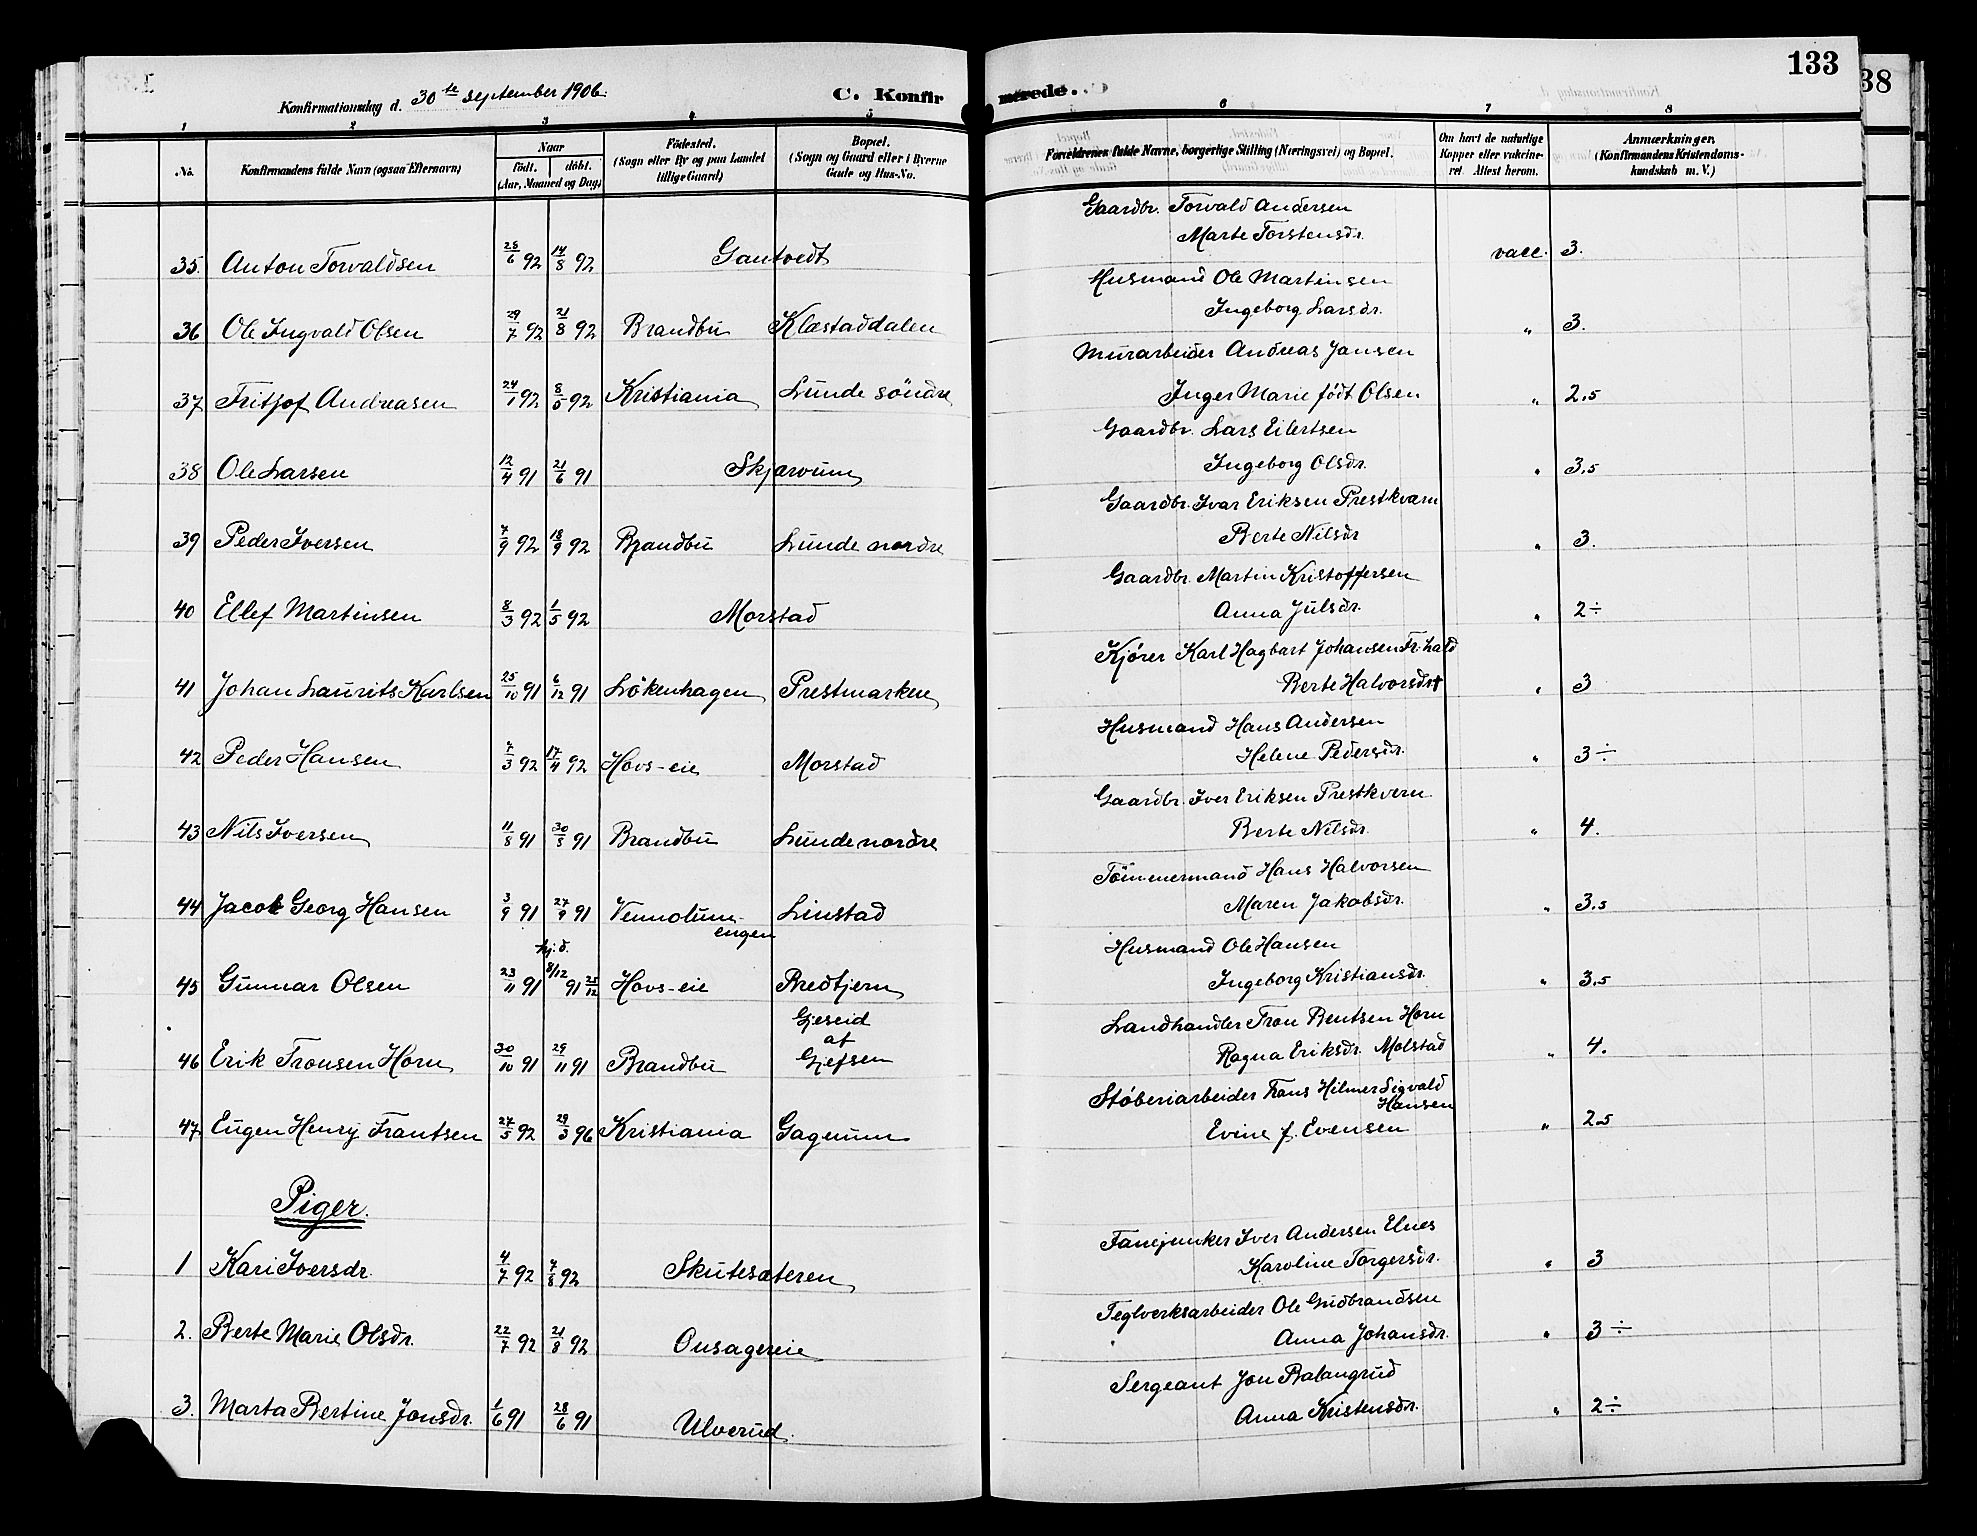 133
38
Konfirmationsdag d. 30te september 1906.
C. Konfirmerede.
1 2 3 4 5 6 7 8
No. Konfirmandens fulde Navn (ogsaa Efternavn) Naar födt. döbt. (Aar, Maaned og Dag) Födested. (Sogn eller By og paa Landet tillige Gaard) Bopæl. (Sogn og Gaard eller i Byerne Gade og Hus-No. Forældrenes fulde Navne, borgerlige Stilling (Næringsvei) og Bopæl. Om havt de naturlige Kopper eller vakcineret. Attest herom. Anmærkninger. (Konfirmandens Kristendomskundskab m. V.)
Gaardbr. Torvald Andersen
35. Anton Torvaldsen 28/6 92 14/8 92 Gamtvedt Marte Torstensdr. vacc. 3.
Husmand Ole Martinsen
36 Ole Ingvald Olsen 29/7 92 21/8 92 Brandbu Klæstaddalen Ingeborg Larsdr. " 3.
Murarbeider Andreas Jansen
37 Fritjof Andreasen 24/1 92 8/5 92 Kristiania Lunde söndre Inger Marie født Olsen " 2.5
Gaardbr. Lars Eilertsen
38 Ole Larsen 12/4 91 21/6 91 Skjervum Ingeborg Olsdr. " 3.5
Gaardbr. Ivar Eriksen Prestkværn
39 Peder Iversen 7/9 92 18/9 92 Brandbu Lunde nordre Berte Nilsdr " 3.
Gaardbr. Martin Kristoffersen
40 Ellef Martinsen 8/3 92 1/5 92 Morstad Anna Julsdr. " 2÷
Kjörer Karl Hagbart Johansen Fr.hald
41 Johan Laurits Karlsen 25/10 91 6/12 91 Lökenhagen Prestmarken Berte Halvorsdr † " 3
Husmand Hans Andersen
42 Peder Hansen 7/3 92 17/4 92 Hovs-eie Morstad Helene Pedersdr. " 3÷
Gaardbr. Iver Eriksen Prestkvern
43 Nils Iversen 11/8 91 30/8 91 Brandbu Lunde nordre Berte Nilsdr. " 4.
Tömmermand Hans Halvorsen
44 Jacob Georg Hansen 3/9 91 27/9 91 Vennolum-engen Linstad Maren Jakobsdr. " 3.5
Husmand Ole Hansen
45 Gunnar Olsen 23/11 91 hj.d. 8/12 91 25/12 Hovs-eie Bredtjern Ingeborg Kristiansdr. " 3.5
Landhandler Tron Bentsen Horn
46 Erik Tronsen Horn 30/10 91 29/11 91 Brandbu Gjeseid af Gjefsen Ragna Eriksdr. Molstad " 4.
Støberiarbeider Frans Hilmer Sigvald Hansen
47 Eugen Henry Frantsen 27/5 92 29/3 96 Kristiania Gagnum Evine f. Evensen " 2.5
Piger.
Fanejunker Iver Andersen Elnes
1 Kari Iversdr. 4/7 92 7/8 92 Skutesæteren Karoline Torgersdr. " 3
Teglverksarbeider Ole Gudbrandsen
2. Berte Marie Olsdr. 22/7 92 21/8 92 Onsagereie Anna Johansdr. " 3÷
Sergeant Jon Balangrud
3. Marta Bertine Jonsdr. 1/6 91 28/6 91 Ulverud. Anna Kristensdr. " 2÷